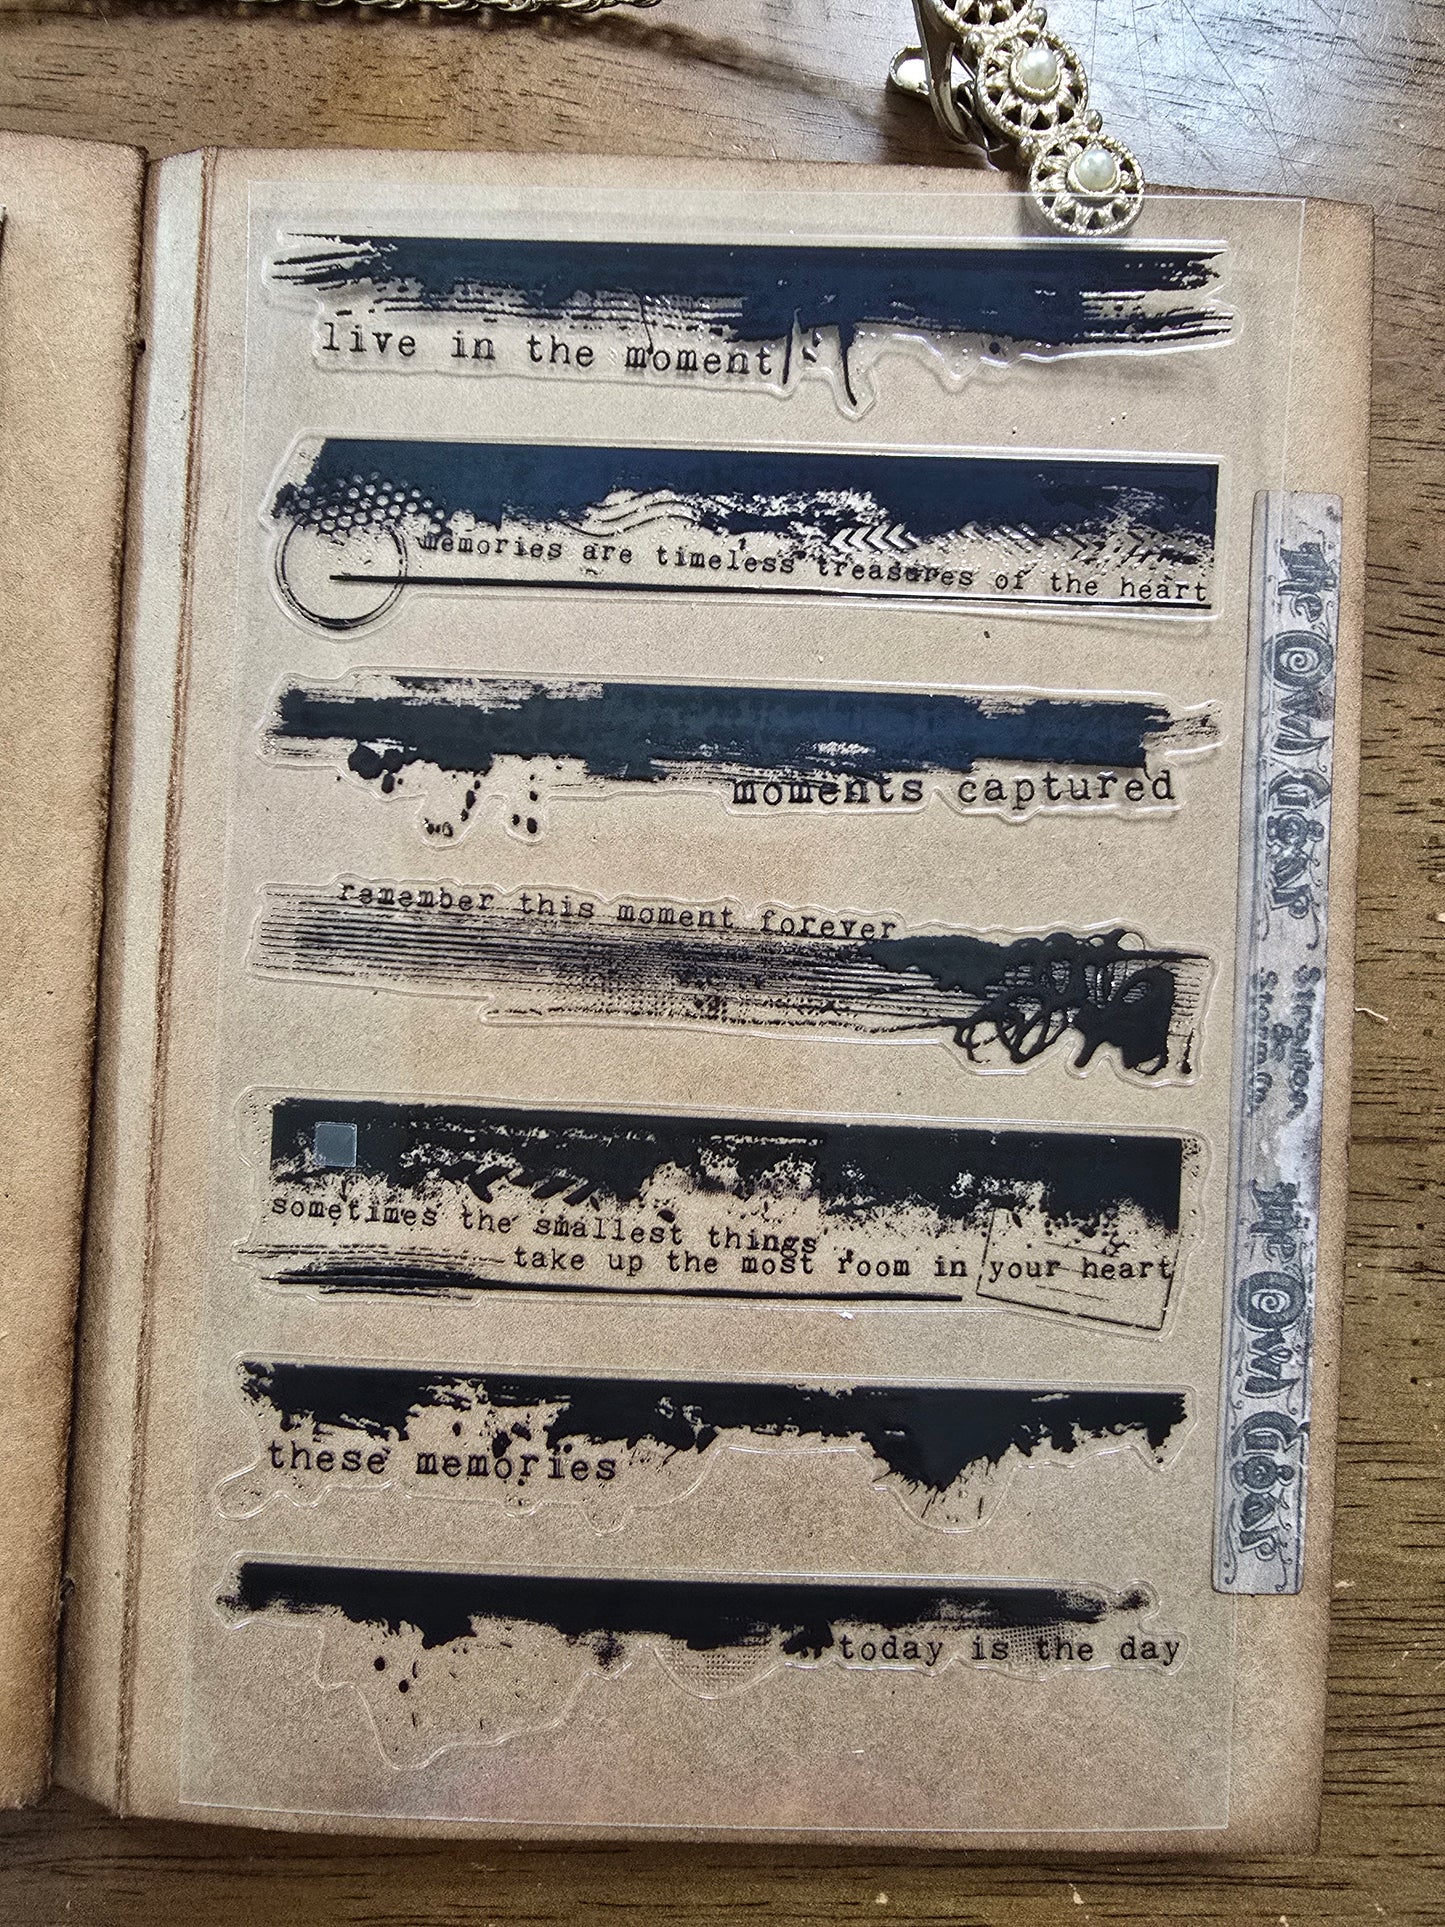 live in the moment
memories are timeless treasures of the heart
moments captured
remember this moment forever
sometimes the smallest things
take up the most room in your heart
these memories
today is the day
The Owl Cigar
The Owl Cigar